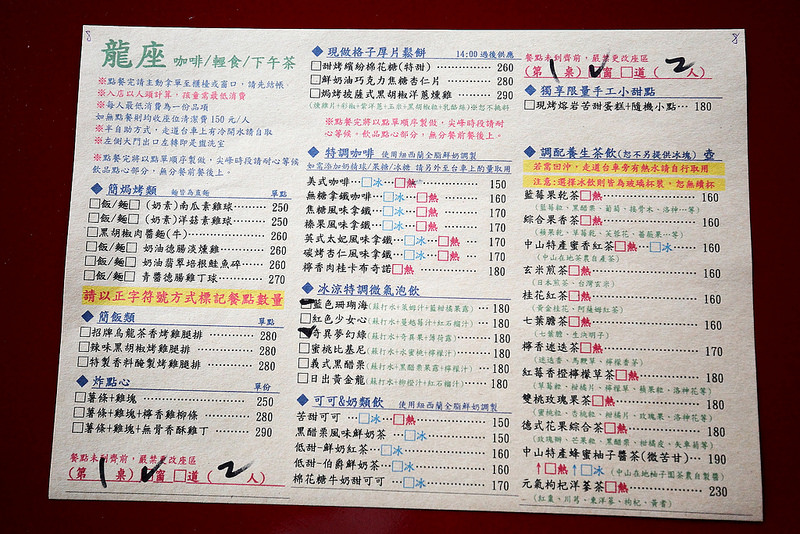 龍座 咖啡/輕食/下午茶
※點餐完請主動拿單至櫃檯或窗口,請先結帳
※入店以人頭計算,孩童需最低消費
※每人最低消費為一份品項
如無點餐則均收座位清潔費150元/人
※半自助方式,走道台車上有冷開水請自取
※左側大門出口左轉即是盥洗室
※點餐完將以點單順序製做,尖峰時段請耐心等候
飲品點心部分,無分餐前餐後上。
◆ 簡焗烤類 麵皆為直麵 單點
□飯/麵□ (奶素)南瓜素雞球 250
□飯/麵□ (奶素)洋菇素雞球 250
□黑胡椒肉醬麵(牛) 260
□飯/麵□ 奶油德腸淡燻雞 260
□飯/麵□ 奶油翡翠培根鮭魚碎 260
□飯/麵□ 青醬德腸雞丁球 270
請以正字符號方式標記餐點數量
◆ 簡飯類 單點
□招牌烏龍茶香烤雞腿排 280
□辣味黑胡椒烤雞腿排 280
□特製香料醃製烤雞腿排 280
◆ 炸點心 單份
□薯條+雞塊 250
□薯條+雞塊+檸香雞柳條 280
□薯條+雞塊+無骨香酥雞丁 290
餐點未到齊前,嚴禁更改座區
(第 1 桌) □窗 □道 (2人)
◆ 現做格子厚片鬆餅 14:00過後供應
□甜烤繽紛棉花糖(特甜) 260
□鮮奶油巧克力焦糖杏仁片 280
□焗烤披薩式黑胡椒洋蔥燻雞 290
(燻雞片+彩椒+紫洋蔥+玉米+黑胡椒粒+乳酪絲)※恕不挑料
※點餐完將以點單順序製做,尖峰時段請耐
心等候。飲品點心部分,無分餐前餐後上。
◆ 特調咖啡 使用紐西蘭全脂鮮奶調製
如需添加奶精球/果糖/冰糖 請另外至台車上酌量取用
美式咖啡 □冰 □熱 150
無糖拿鐵咖啡 □冰 □熱 160
焦糖風味拿鐵 □冰 □熱 170
榛果風味拿鐵 □冰 □熱 170
英式太妃風味拿鐵 □冰 □熱 170
碳烤杏仁風味拿鐵 □冰 □熱 170
檸香肉桂卡布奇諾 □熱 170
◆ 冰涼特調微氣泡飲
□藍色珊瑚海(蘇打水+萊姆汁+藍柑橘果露) 180
□紅色少女心(蘇打水+蔓越莓汁+紅石榴汁) 180
□奇異夢幻綠(蘇打水+奇異果+薄荷露) 180
□蜜桃比基尼(蘇打水+水蜜桃+檸檬汁) 180
□義式黑醋栗(蘇打水+黑醋栗果露+檸檬汁) 180
□日出黃金龍(蘇打水+柳橙汁+紅石榴汁) 180
◆ 可可&奶類飲 使用紐西蘭全脂鮮奶調製
苦甜可可 □冰 □熱 150
黑醋栗風味鮮奶茶 □冰 150
低甜-鮮奶紅茶 □冰 160
低甜-伯爵鮮奶茶 □冰 160
棉花糖牛奶甜可可 □冰 170
餐點未到齊前,嚴禁更改座區
(第 1 桌) □窗 □道 (2人)
◆ 獨享限量手工小甜點
□現烤熔岩苦甜蛋糕+隨機小點 180
◆ 調配養生茶飲(恕不另提供冰塊) 壺
若需回沖,走道台車旁有熱水請自行取用
注意:選擇冰飲則皆為玻璃杯裝,恕無續杯
藍莓果乾茶□熱 160
(藍莓粒、黑醋栗、葡萄、接骨木、洛神…等)
綜合果香茶□熱 160
(蘋果乾、草莓乾、芙蓉花、薔薇果…等)
中山特產蜜香紅茶□熱 □冰 160
(中山在地茶農自產茶)
玄米煎茶□熱 160
(日本煎茶、台灣玄米)
桂花紅茶□熱 160
(黃金桂花、阿薩姆紅茶)
七葉膽茶□熱 160
(七葉膽、生決明子)
檸香迷迭茶□熱 170
(迷迭香、馬鞭草、檸檬香茅)
紅莓香橙檸檬草茶□熱 180
(草莓粒、柑橘片、檸檬草、蘋果粒、洛神花等)
雙桃玫瑰果茶□熱 180
(蜜桃粒、杏桃粒、柑橘片、玫瑰果、洛神花等)
德式花果綜合茶□熱 180
(玫瑰瓣、芒果粒、黑醋栗、柑橘皮、矢車菊等)
中山特產蜂蜜柚子醬茶(微苦甘) 190
↑□熱 ↑□冰 (中山在地柚子園茶農自製醬)
元氣枸杞洋蔘茶□熱 230
(紅棗、川芎、東洋蔘、枸杞、黃耆)